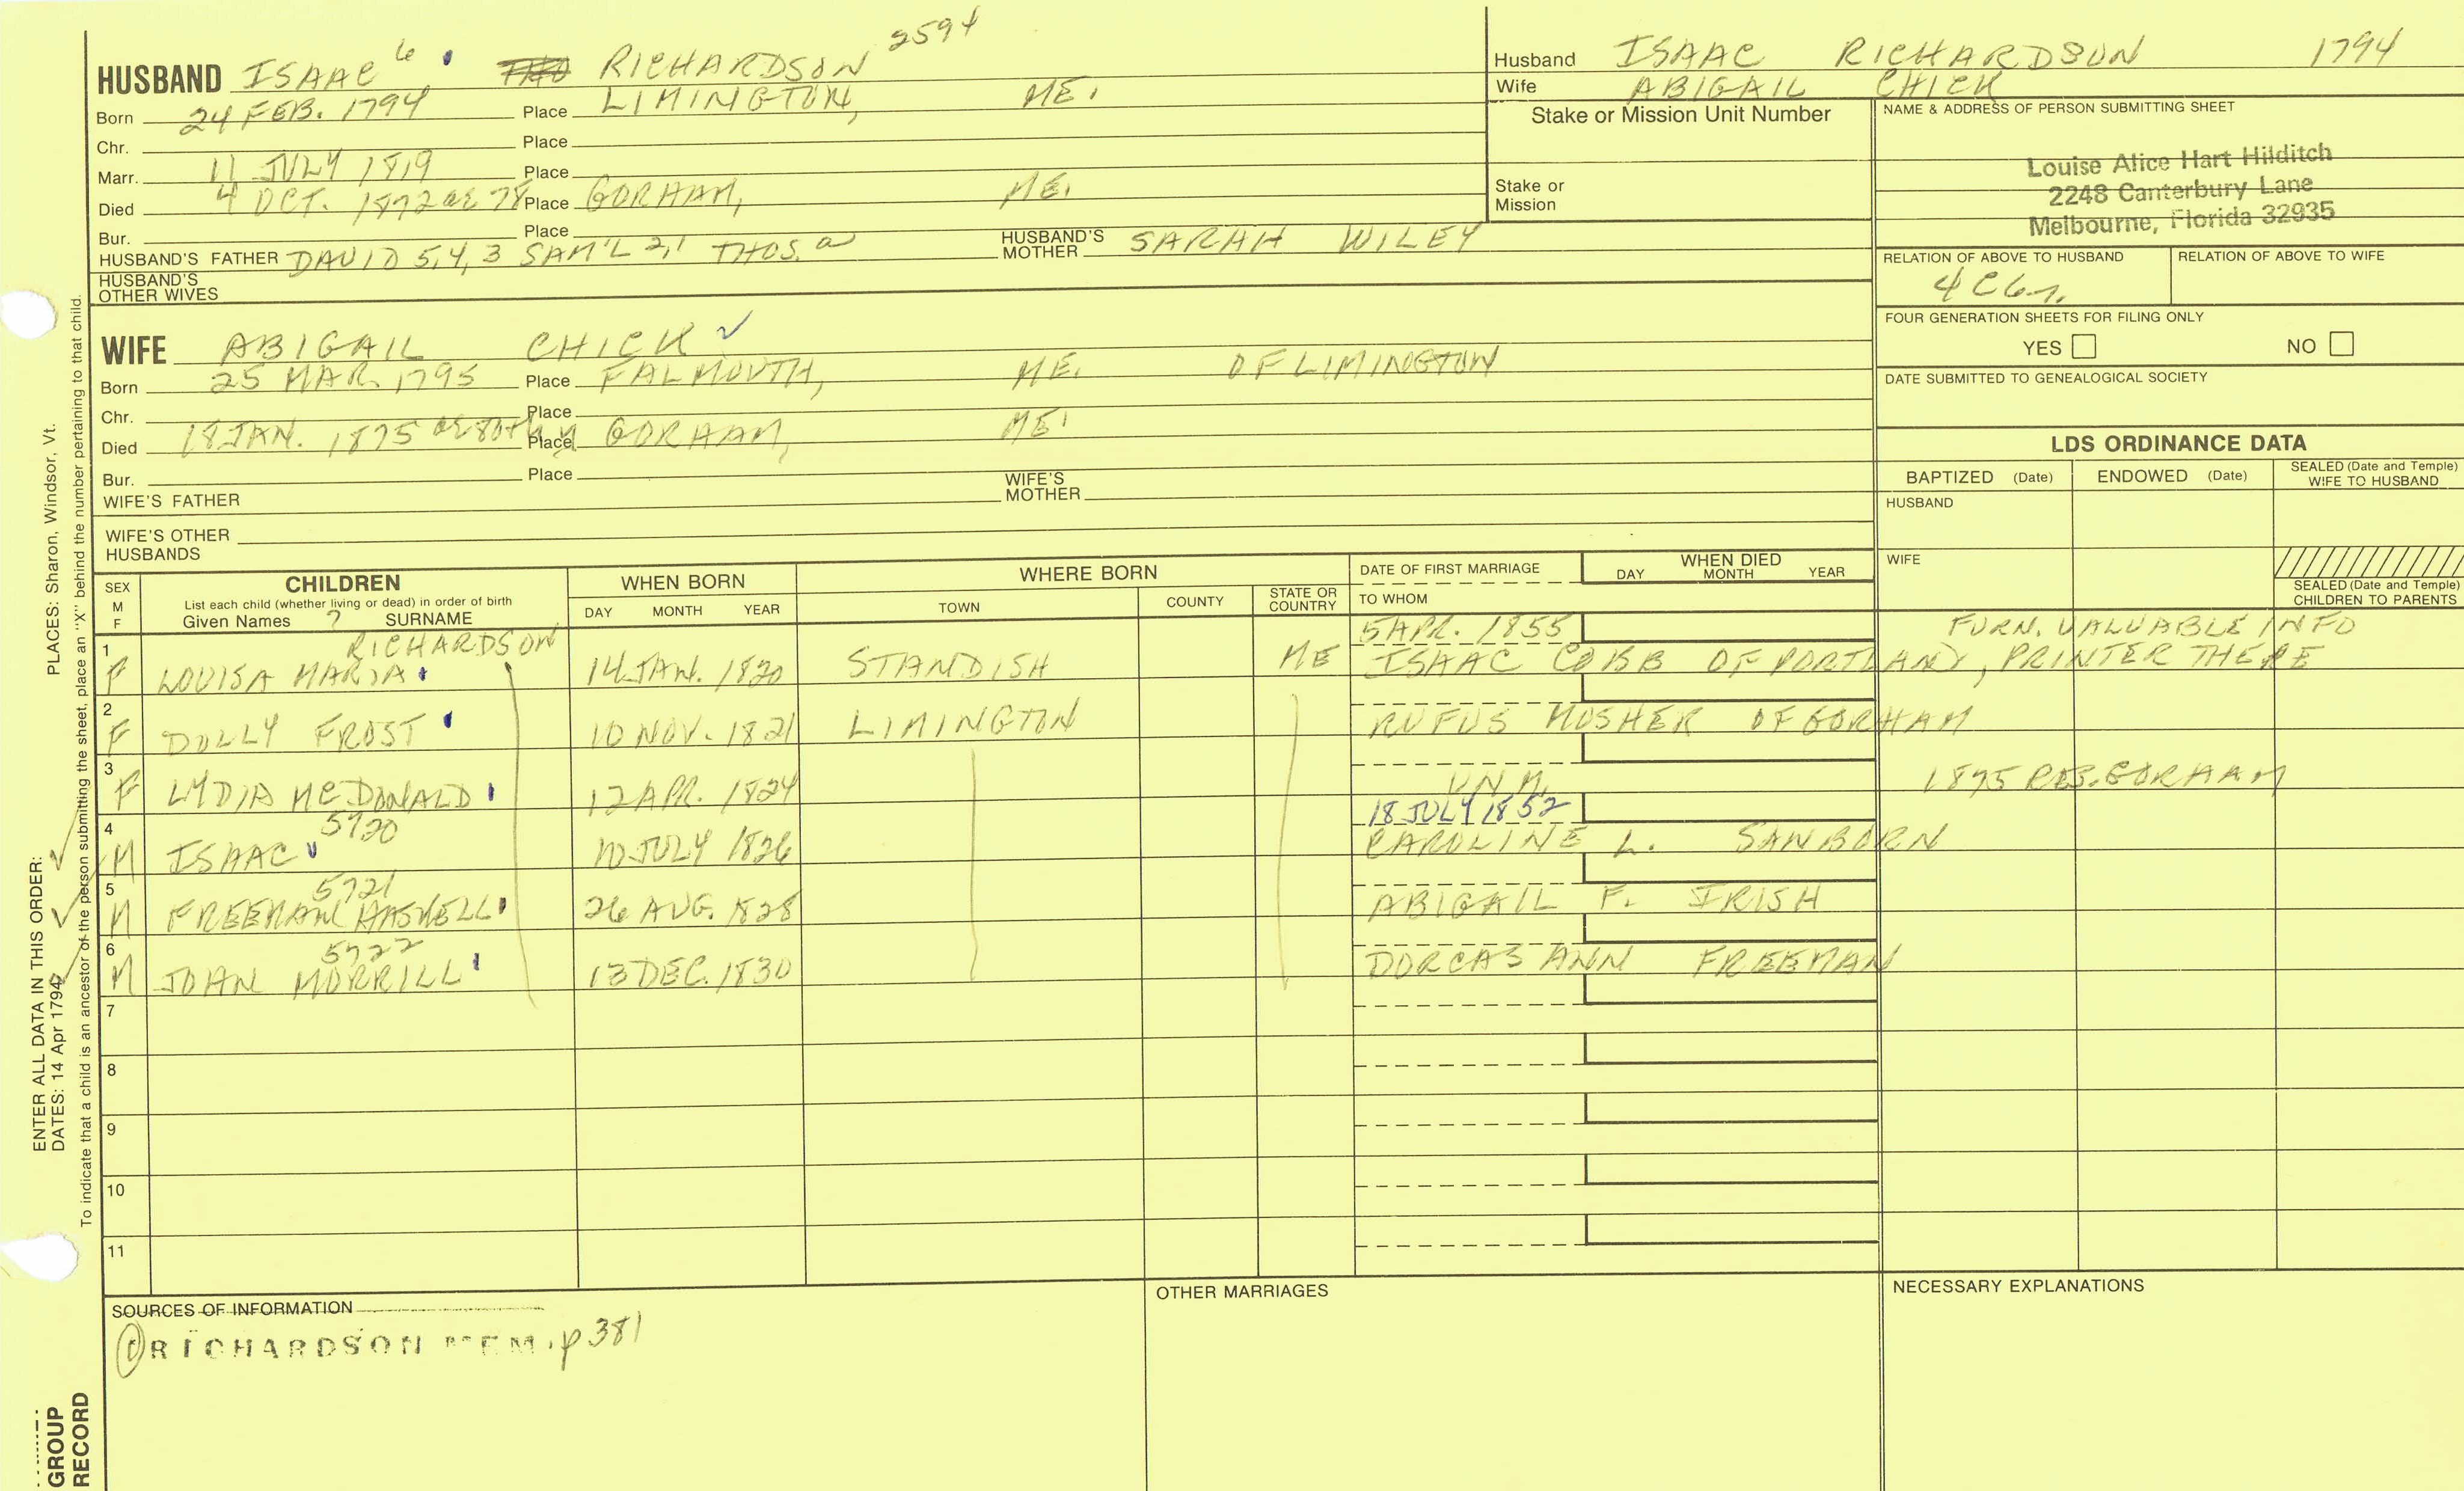 HUSBAND ISAAC 6 RICHARDSON 2594
Born 24 FEB. 1794 Place LIMINGTON, ME.
Chr. Place
Marr. 11 JULY 1819 Place
Died 4 OCT. 1872 ae 78 Place GORHAM, ME.
Bur. Place
HUSBAND'S FATHER DAVID 5,4,3 SAM'L 2,1 THOS. a HUSBAND'S MOTHER SARAH WILEY
HUSBAND'S OTHER WIVES
Husband ISAAC RICHARDSON 1794
Wife ABIGAIL CHICK
Stake or Mission Unit Number
Stake or Mission
NAME & ADDRESS OF PERSON SUBMITTING SHEET
Louise Alice Hart Hilditch
2248 Canterbury Lane
Melbourne, Florida 32935
RELATION OF ABOVE TO HUSBAND RELATION OF ABOVE TO WIFE
4C6r.
FOUR GENERATION SHEETS FOR FILING ONLY
YES NO
DATE SUBMITTED TO GENEALOGICAL SOCIETY
WIFE ABIGAIL CHICK ✓
Born 25 MAR. 1795 Place FALMOUTH, ME. OF LIMINGTON
Chr. Place
Died 18 JAN. 1875 ae 80th y Place GORHAM, ME.
Bur. Place
WIFE'S FATHER WIFE'S MOTHER
WIFE'S OTHER HUSBANDS
LDS ORDINANCE DATA
BAPTIZED (Date) ENDOWED (Date) SEALED (Date and Temple) WIFE TO HUSBAND
HUSBAND
WIFE
SEALED (Date and Temple) CHILDREN TO PARENTS
SEX M F CHILDREN List each child (whether living or dead) in order of birth Given Names ? SURNAME WHEN BORN DAY MONTH YEAR WHERE BORN TOWN COUNTY STATE OR COUNTRY DATE OF FIRST MARRIAGE TO WHOM WHEN DIED DAY MONTH YEAR
RICHARDSON 5 APR. 1855 FURN. VALUABLE INFO
1 F LOUISA MARIA 14 JAN. 1820 STANDISH ME ISAAC COBB OF PORTLAND, PRINTER THERE
2 F DOLLY FROST 10 NOV. 1821 LIMINGTON RUFUS MOSHER OF GORHAM
3 F LYDIA MCDONALD 12 APR. 1824 UNM. 1875 RES. GORHAM
5720 18 JULY 1852
4 M ISAAC 10 JULY 1826 CAROLINE L. SANBORN
5721
5 M FREEMAN HASKELL 26 AUG. 1828 ABIGAIL F. IRISH
5722
6 M JOHN MORRILL 13 DEC. 1830 DORCAS ANN FREEMAN
7
8
9
10
11
SOURCES OF INFORMATION OTHER MARRIAGES NECESSARY EXPLANATIONS
RICHARDSON MEM. p 381
ENTER ALL DATA IN THIS ORDER:
DATES: 14 Apr 1794 PLACES: Sharon, Windsor, Vt.
To indicate that a child is an ancestor of the person submitting the sheet, place an "X" behind the number pertaining to that child.
GROUP
RECORD